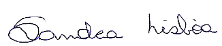 Sandra Lisbôa